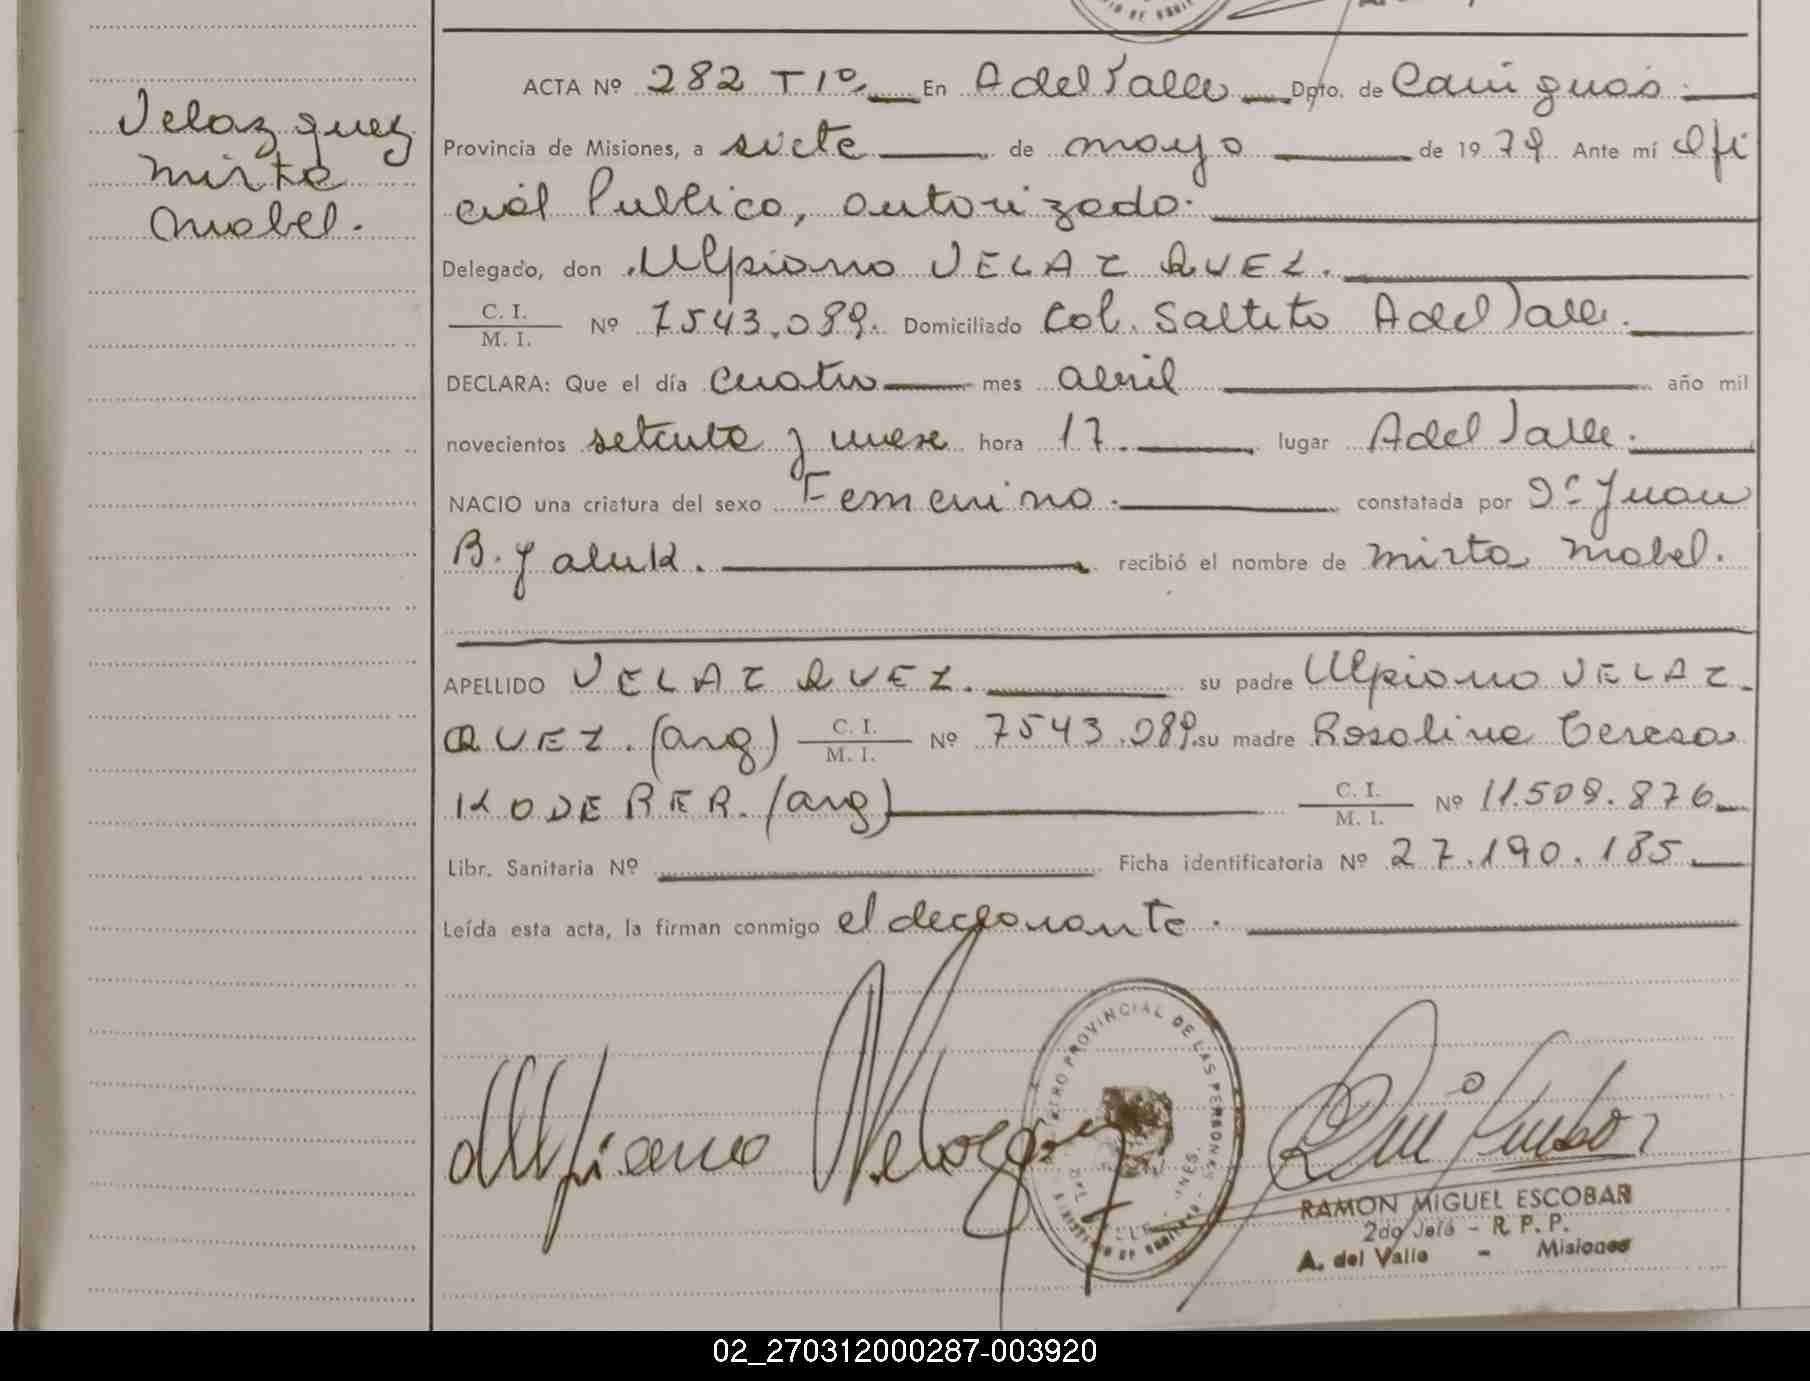 Velazquez
Mirta
Mabel.
ACTA Nº 282 T 1º En A del Valle Dpto. de Cainguás.
Provincia de Misiones, a siete de mayo de 1979. Ante mí Ofi
cial Publico, autorizado.
Delegado, don Ulpiano VELAZQUEZ.
C. I.
M. I. Nº 7543.089. Domiciliado Col. Saltito A del Valle.
DECLARA: Que el día cuatro mes abril año mil
novecientos setenta y nueve hora 17. lugar A del Valle.
NACIO una criatura del sexo Femenino. constatada por Dr Juan
B. Yaluk. recibió el nombre de Mirta Mabel.
APELLIDO VELAZQUEZ. su padre Ulpiano VELAZ
QUEZ. (arg) C. I. M. I. Nº 7543.089. su madre Rosalina Teresa
KODERER. (arg) C. I. M. I. Nº 11.509.876
Libr. Sanitaria Nº Ficha identificatoria Nº 27.190.185.
Leída esta acta, la firman conmigo el declarante.
Ulpiano Velazquez
REGISTRO PROVINCIAL DE LAS PERSONAS
RAMON MIGUEL ESCOBAR
2do Jefe - R. P. P.
A. del Valle - Misiones
02_270312000287-003920